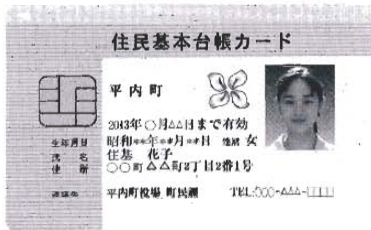 住民基本台帳カード
平内町
2013年○月△△日まで有効
生年月日 昭和**年**月**日 性別 女
氏名 住基 花子
住所 ○○町△△町2丁目2番1号
連絡先 平内町役場 町民課 TEL:○○○-△△△-□□□□